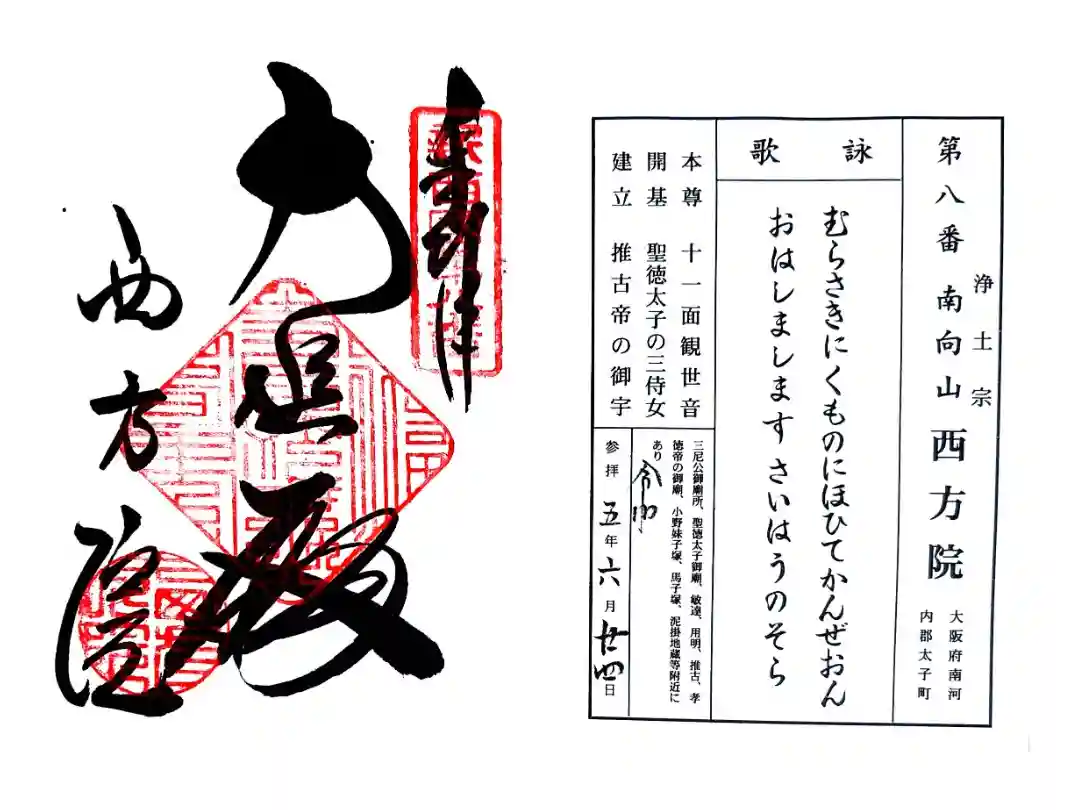 浄土宗
第八番 南向山 西方院
大阪府南河
内郡太子町
詠歌
むらさきにくものにほひてかんぜおん
おはしましますさいはうのそら
本尊 十一面観世音
開基 聖徳太子の三侍女
建立 推古帝の御宇
三尼公御廟所、聖徳太子御廟、敏達、用明、推古、孝
徳帝の御廟、小野妹子塚、馬子塚、泥掛地蔵等附近に
あり
令和
参拝 五年六月廿四日
奉拝
大悲殿
西方院